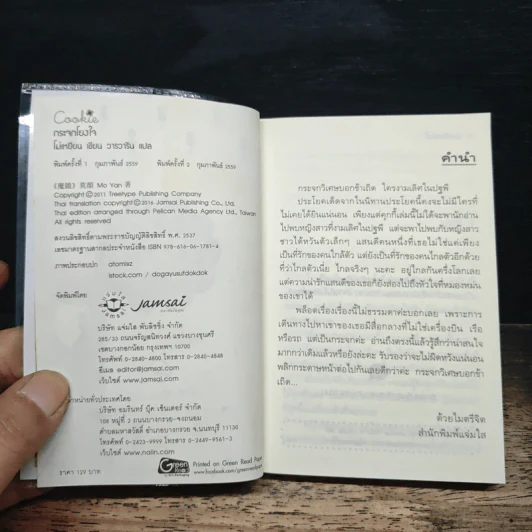 Cookie
กระจกโยงใจ
โม่เหยียน เขียน วารวาริน แปล
พิมพ์ครั้งที่ 1 กุมภาพันธ์ 2559 พิมพ์ครั้งที่ 2 กุมภาพันธ์ 2559
《魔鏡》莫顏 Mo Yan 著
Copyright ©2011 Treetype Publishing Company
Thai translation copyright ©2016 Jamsai Publishing Co., Ltd.
Thai edition arranged through Pelican Media Agency Ltd., Taiwan
All rights reserved.
สงวนลิขสิทธิ์ตามพระราชบัญญัติลิขสิทธิ์ พ.ศ. 2537
เลขมาตรฐานสากลประจำหนังสือ ISBN 978-616-06-1781-4
ภาพประกอบปก atomisz
istock.com / dogayusufdokdok
จัดพิมพ์โดย
Jamsai
บริษัท แจ่มใส พับลิชชิ่ง จำกัด
285/33 ถนนจรัญสนิทวงศ์ แขวงบางขุนศรี
เขตบางกอกน้อย กรุงเทพฯ 10700
โทรศัพท์ 0-2840-4800 โทรสาร 0-2840-4848
อีเมล editor@jamsai.com
เว็บไซต์ www.jamsai.com
จำหน่ายทั่วประเทศโดย
บริษัท อมรินทร์ บุ๊ค เซ็นเตอร์ จำกัด
108 หมู่ 2 ถนนบางกรวย-จงถนอม
ตำบลมหาสวัสดิ์ อำเภอบางกรวย จ.นนทบุรี 11130
โทรศัพท์ 0-2423-9999 โทรสาร 0-2449-9561-3
เว็บไซต์ www.naiin.com
ราคา 129 บาท
Green Read Printed on Green Read Paper
คำนำ
กระจกวิเศษบอกข้าเถิด ใครงามเลิศในปฐพี
ประโยคเด็ดจากในนิทานประโยคนี้คงจะไม่มีใครที่
ไม่เคยได้ยินแน่นอน เพียงแต่คุกกี้เล่มนี้ไม่ได้จะพานักอ่าน
ไปพบหญิงสาวที่งามเลิศในปฐพี แต่จะพาไปพบกับหญิงสาว
ชาวไต้หวันตัวเล็กๆ แสนดีคนหนึ่งที่เธอไม่ใช่แค่เพียง
เป็นที่รักของคนใกล้ตัว แต่ยังเป็นที่รักของคนไกลตัวอีกด้วย
ที่ว่าไกลตัวเนี่ย ไกลจริงๆ นะคะ อยู่ไกลกันครึ่งโลกเลย
แต่ความน่ารักแสนดีของเธอก็ยังส่องไปถึงหัวใจที่หมองหม่น
ของเขาได้
พล็อตเรื่องเรื่องนี้ไม่ธรรมดาค่ะบอกเลย เพราะการ
เดินทางไปหาเขาของเธอมีสื่อกลางที่ไม่ใช่เครื่องบิน เรือ
หรือรถ แต่เป็นกระจกค่ะ อ่านถึงตรงนี้แล้วรู้สึกว่าน่าสนใจ
มากกว่าเดิมแล้วหรือยังล่ะคะ รับรองว่าจะไม่ผิดหวังแน่นอน
พลิกกระดาษหน้าต่อไปกันเลยดีกว่าค่ะ กระจกวิเศษบอกข้า
เถิด...
ด้วยไมตรีจิต
สำนักพิมพ์แจ่มใส